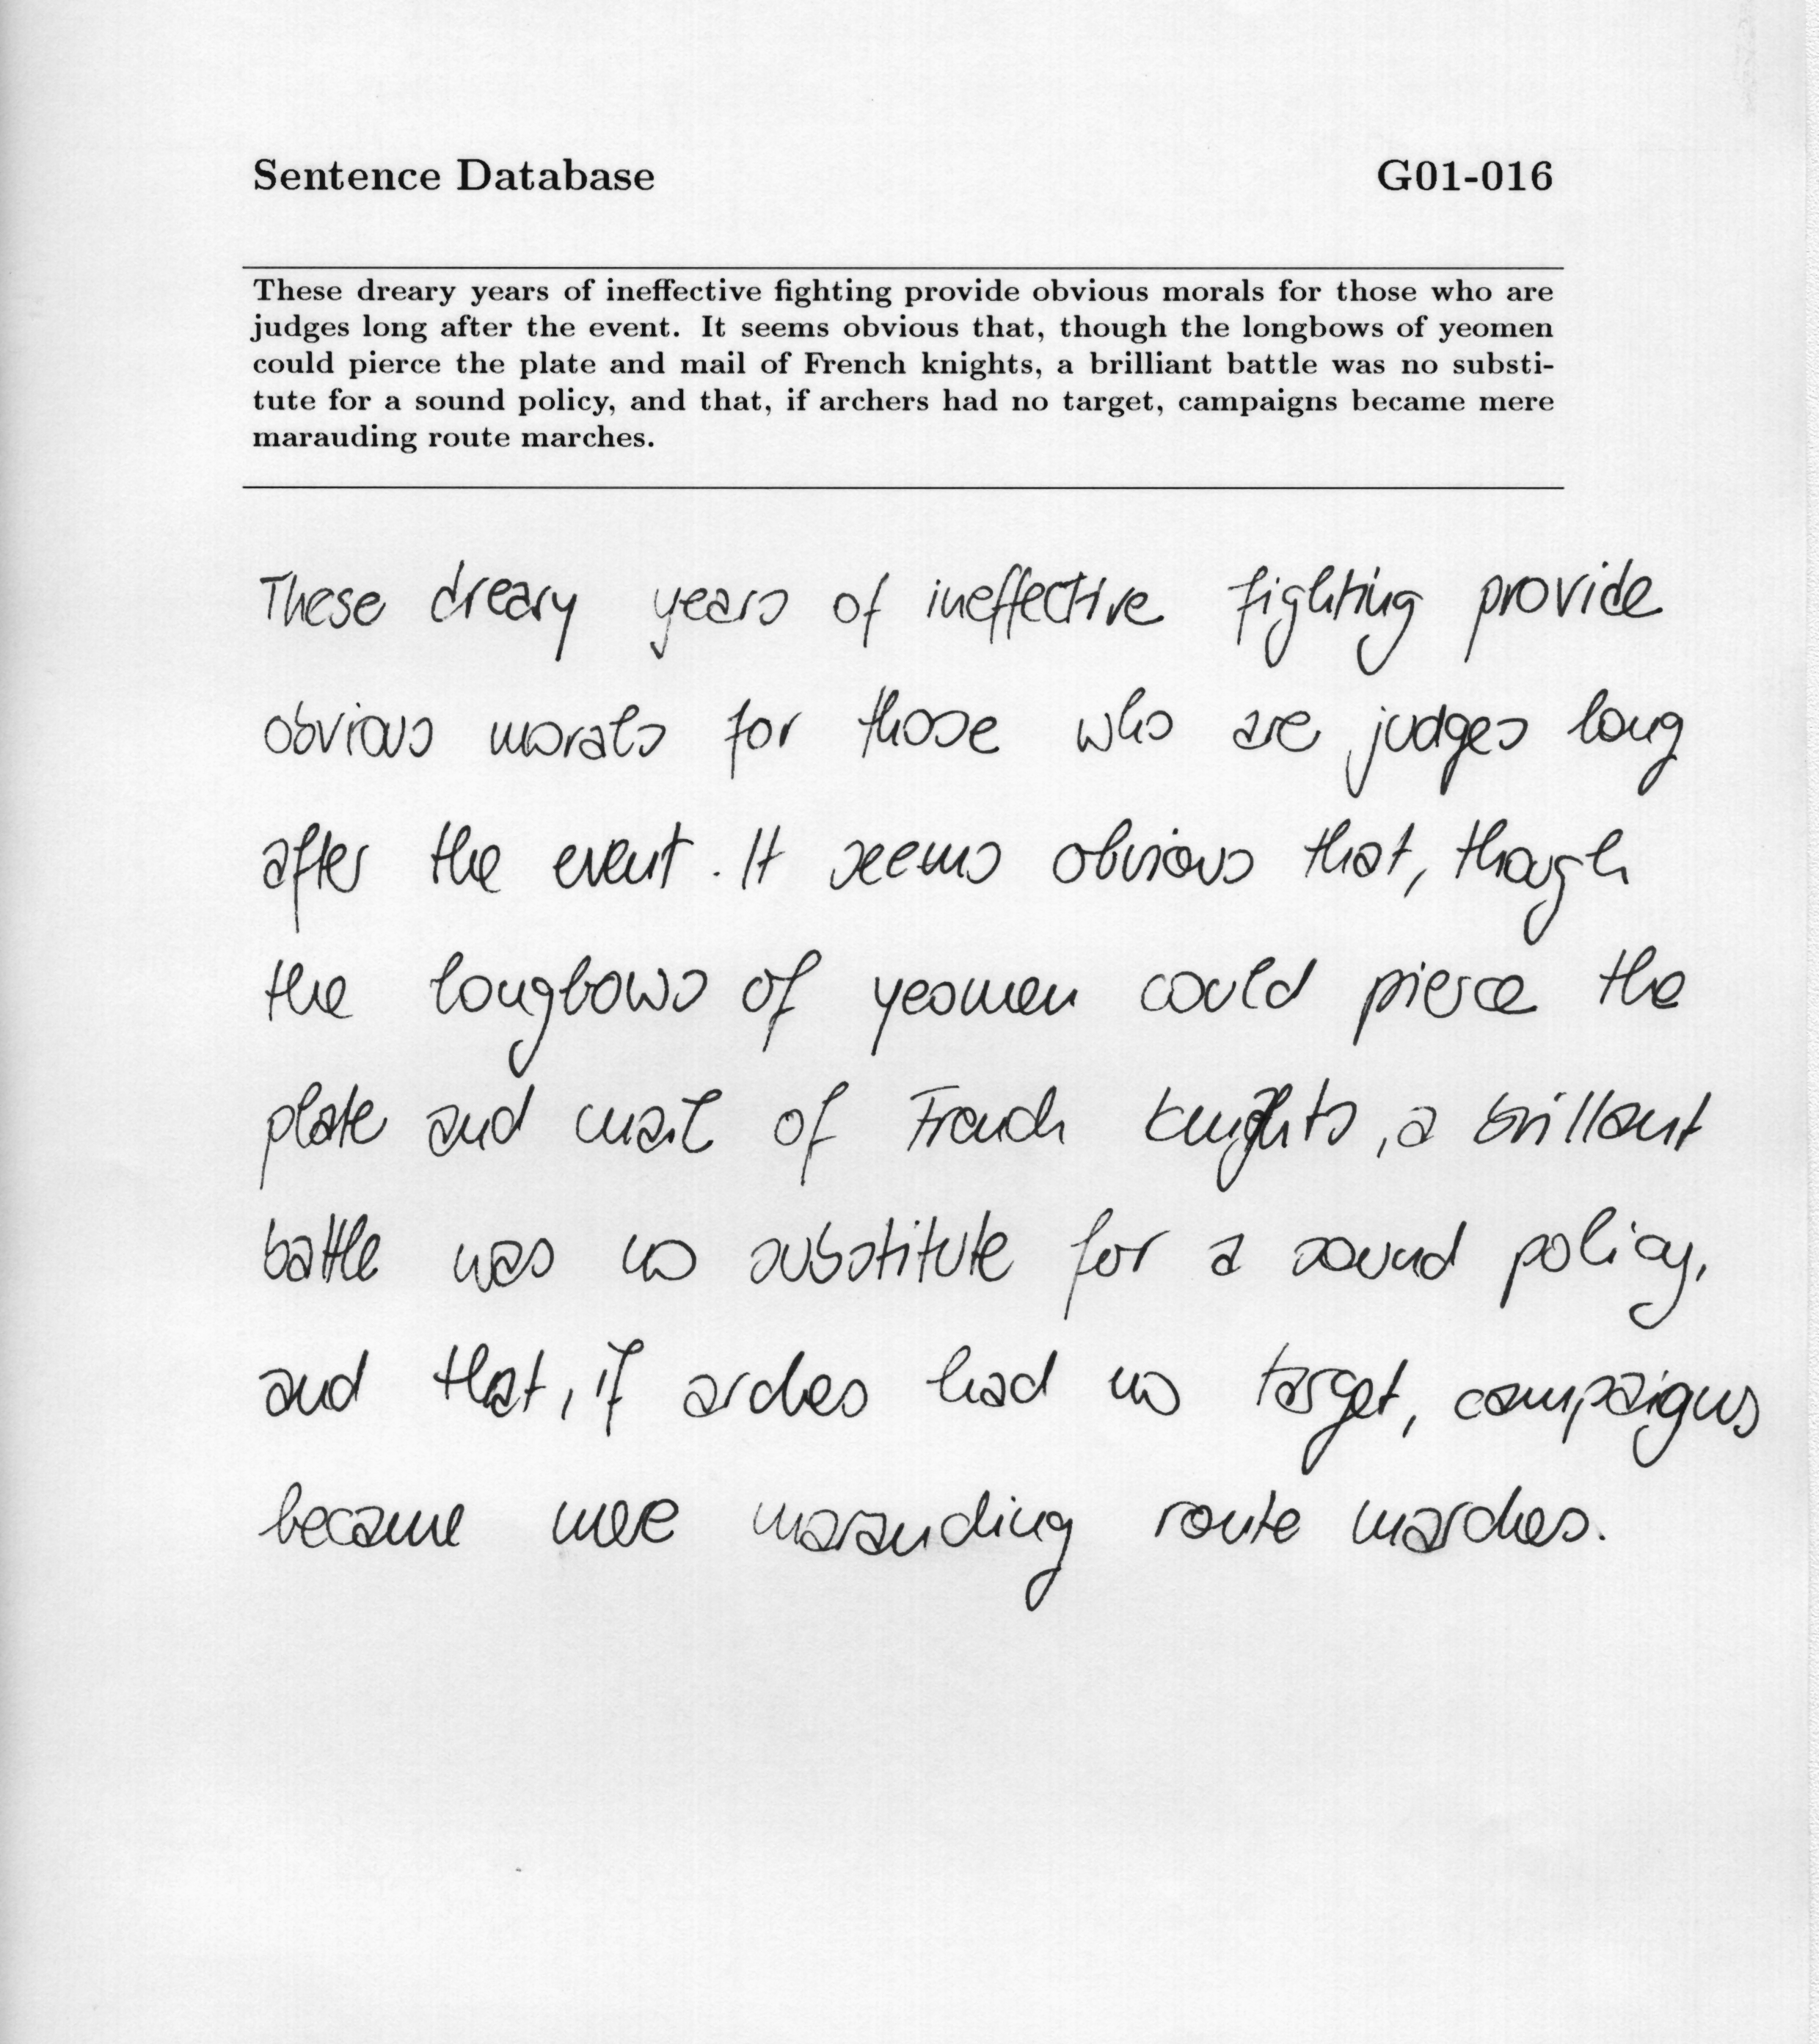 Sentence Database G01-016
These dreary years of ineffective fighting provide obvious morals for those who are
judges long after the event. It seems obvious that, though the longbows of yeomen
could pierce the plate and mail of French knights, a brilliant battle was no substi-
tute for a sound policy, and that, if archers had no target, campaigns became mere
marauding route marches.
These dreary years of ineffective fighting provide
obvious morals for those who are judges long
after the event. It seems obvious that, though
the longbows of yeomen could pierce the
plate and mail of French knights, a brillant
battle was no substitute for a sound policy,
and that, if arches had no target, campaigns
became mere marauding route marches.